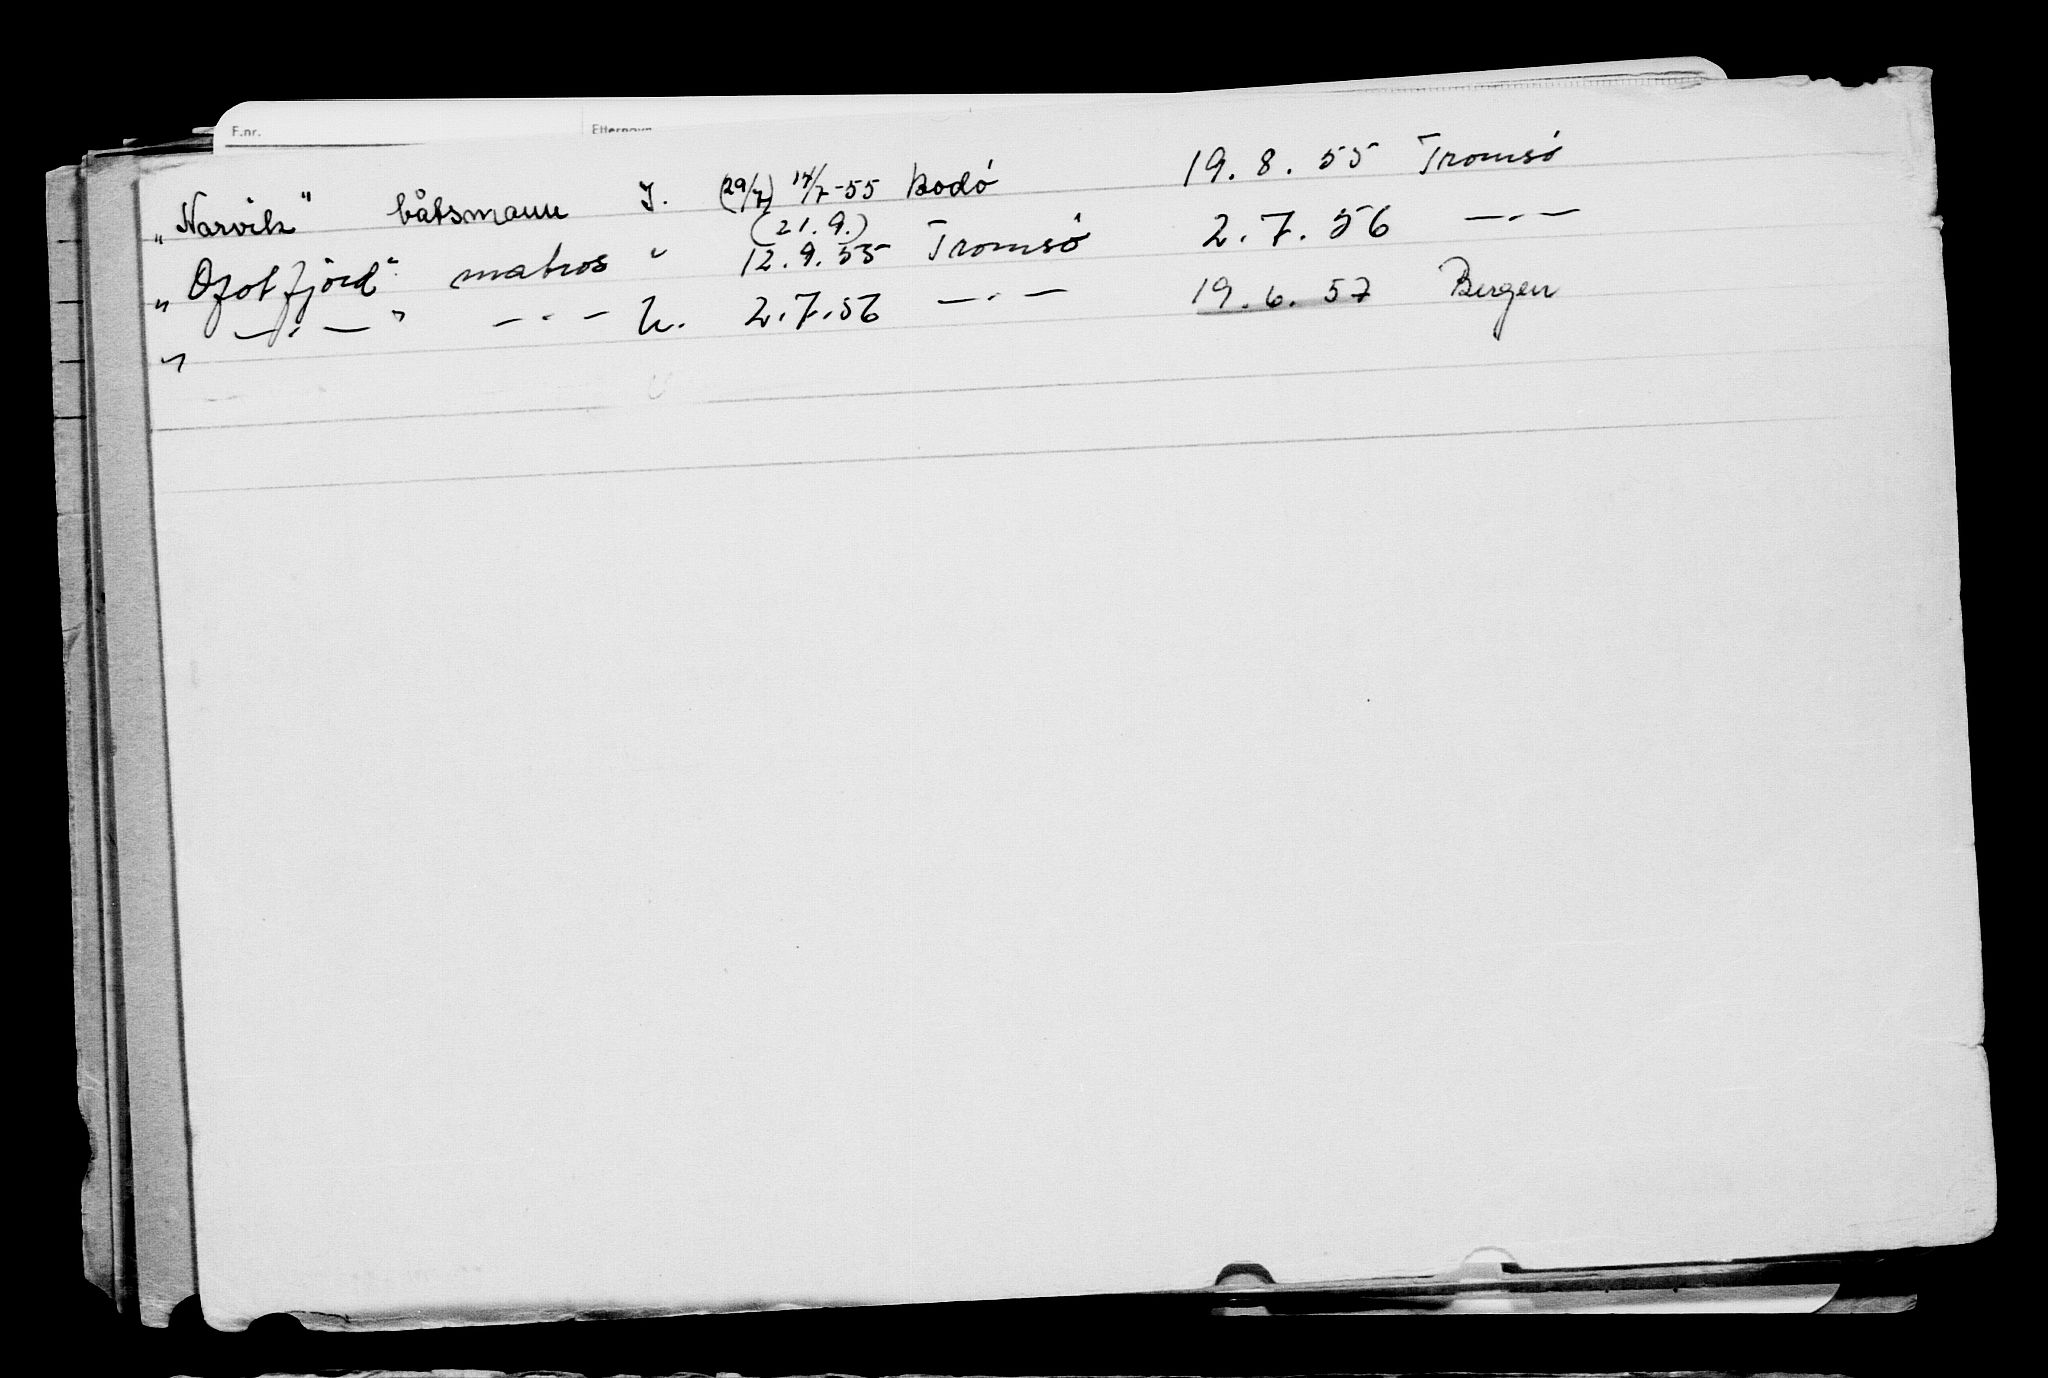 F.nr. Etternavn
„Narvik" båtsmann I. (29/7) 14/7-55 Bodö 19.8.55 Tromsö
(21.9.)
„Ofotfjord" matros " 12.9.55 Tromsö 2.7.56 —·—
„ —·— " —·— U. 2.7.56 —·— 19.6.57 Bergen